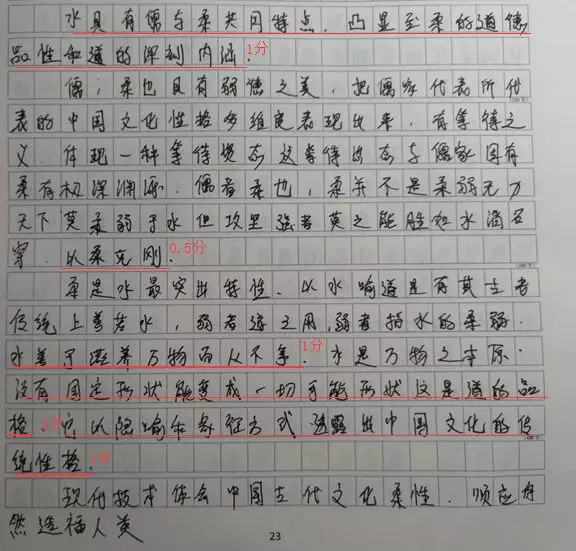 水具有儒与柔共同特点，凸显至柔的道德
品性和道的深刻内涵. 1分
儒；柔也具有弱德之美，把儒家代表所代
表的中国文化性格多维良表现出来，有等待之
义.体现一种等待姿态这等待姿态与儒家固有
柔有极深渊源.儒者柔也，柔并不是柔弱无力
天下莫柔弱于水但攻坚强者莫之能胜如水滴石
穿.以柔克刚. 0.5分
柔是水最突出特性.以水喻道是有其古老
传统上善若水，弱者道之用,弱者指水的柔弱.
水善于滋养万物而从不争. 1分 水是万物之本原.
没有固定形状能变成一切可能形状这是道的品
格.它以隐喻和象征方式透露出中国文化的传
统性格.
现代技术体会中国古代文化柔性.顺应自
然造福人类
23